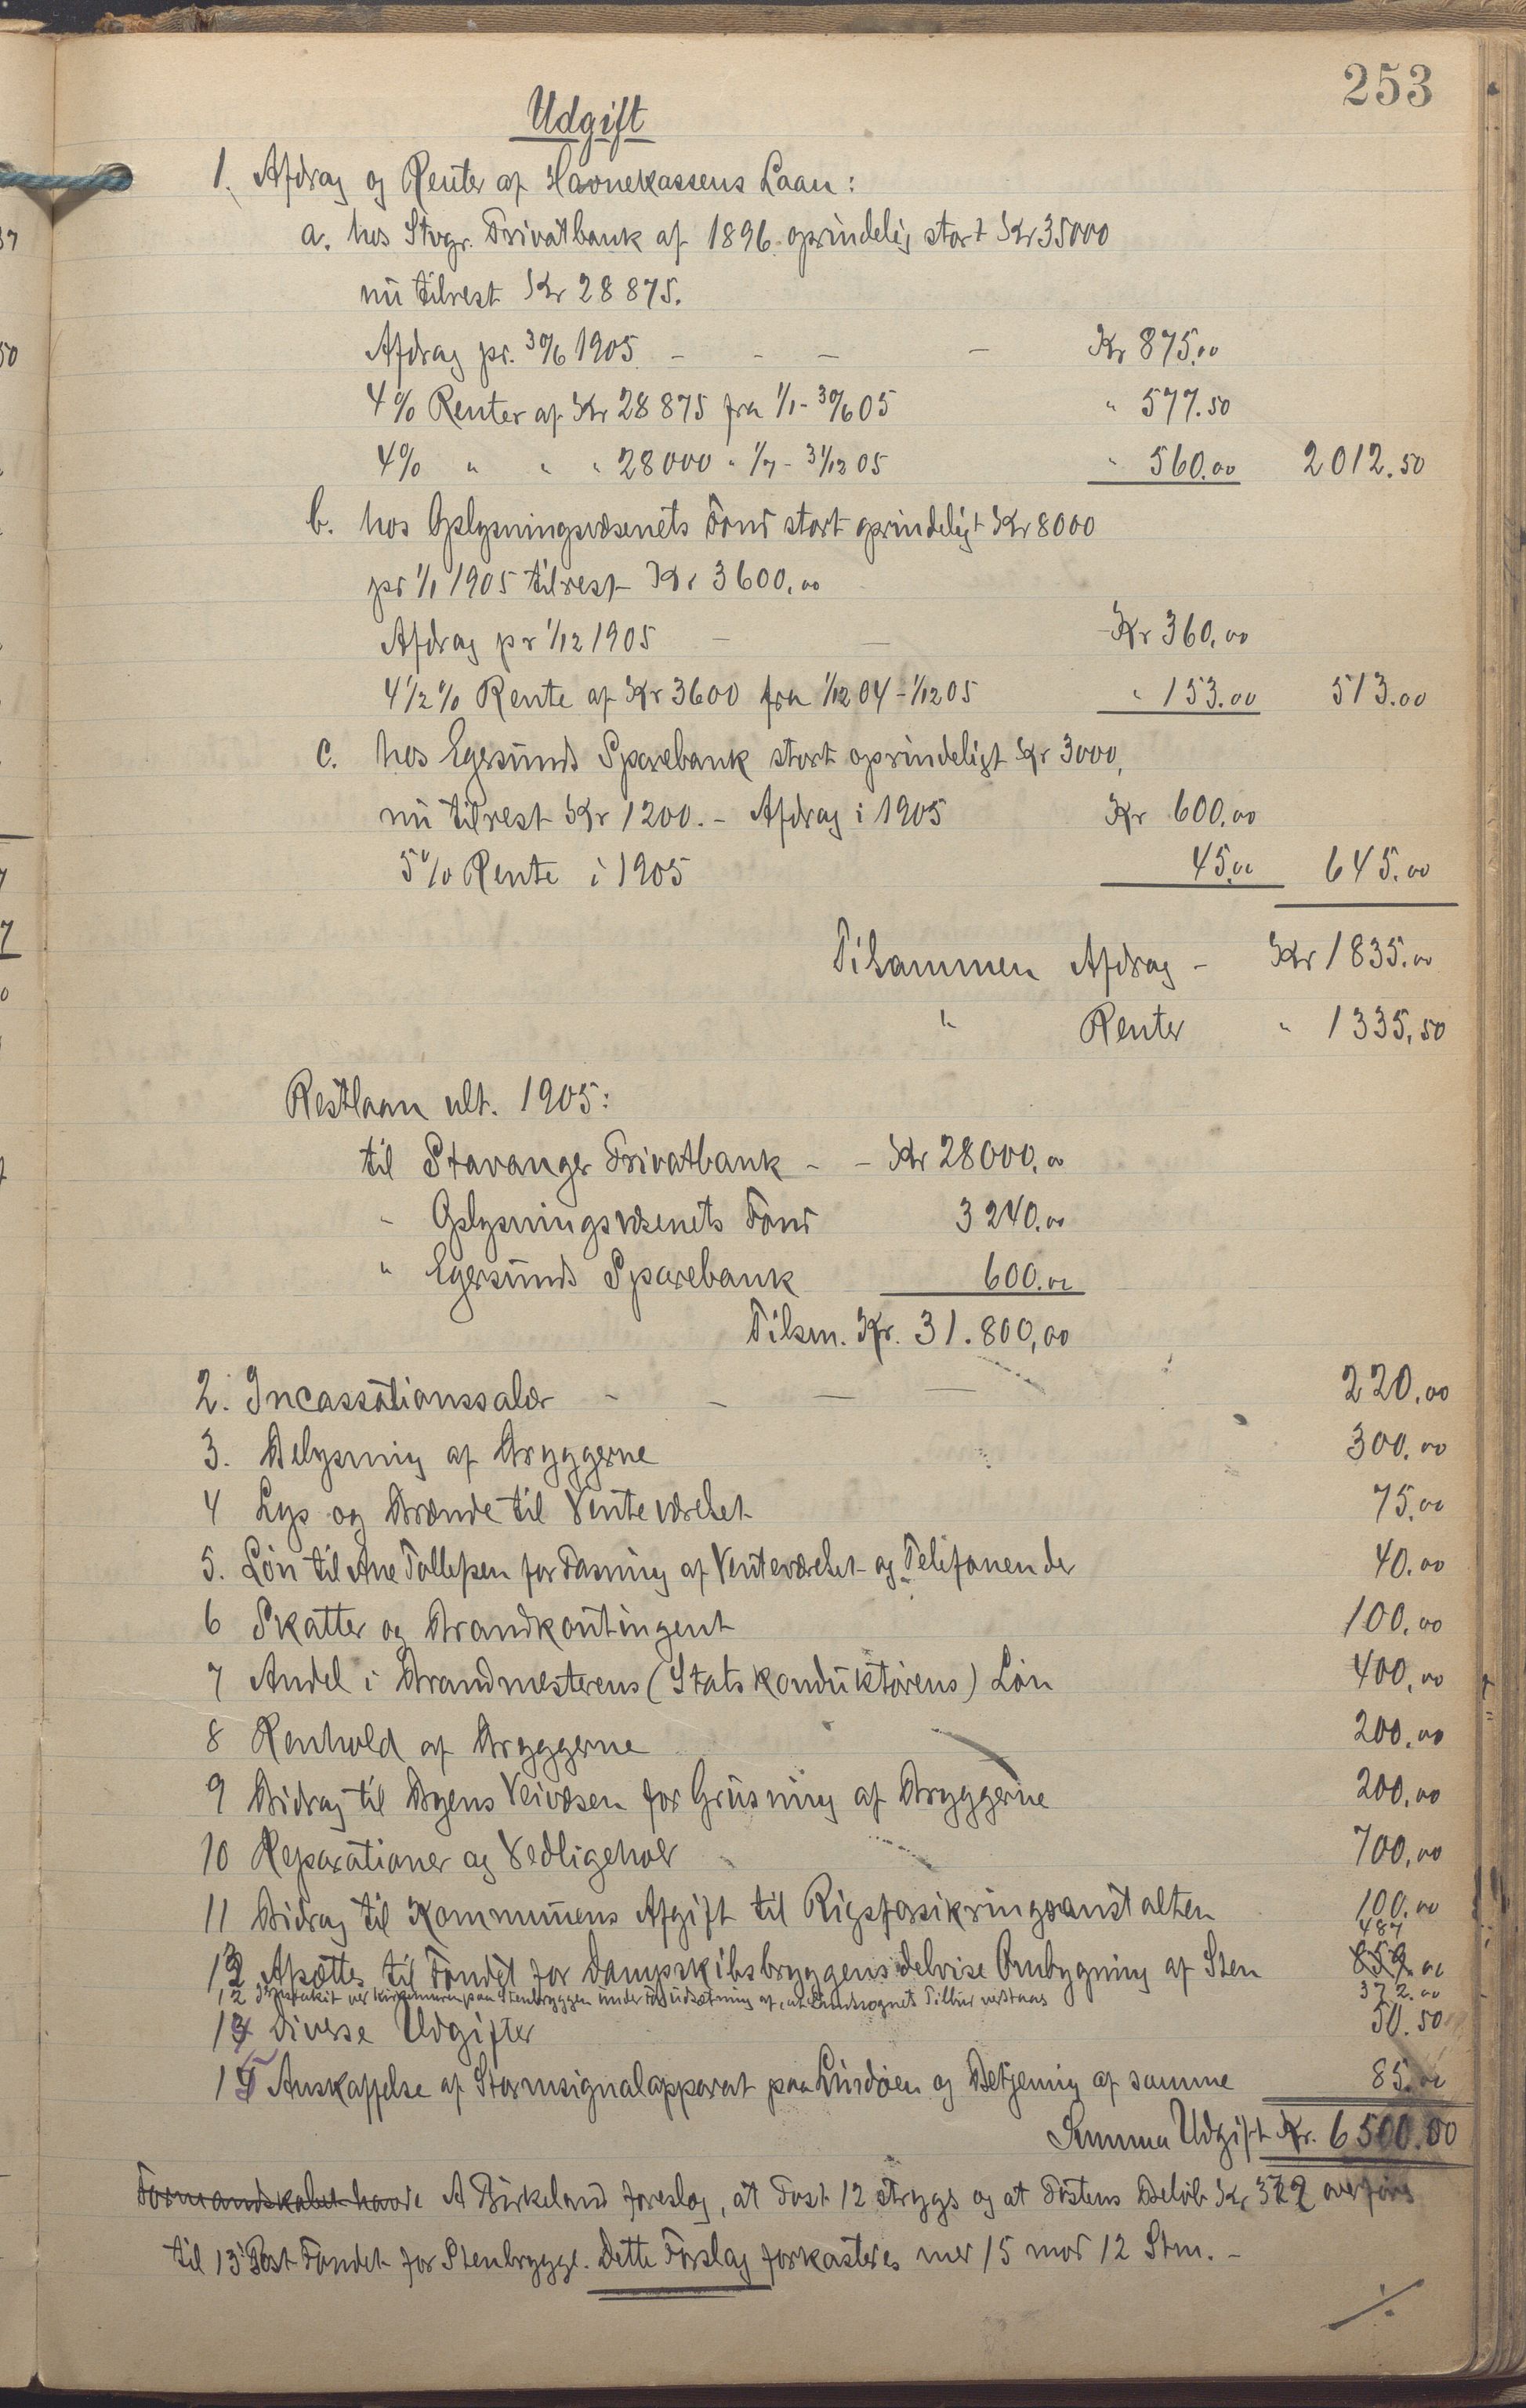 253
Udgift
1. Afdrag og Renter af Havnekassens Laan:
a. hos Stvgr. Privatbank af 1896 oprindelig stort Kr 35000
nu tilrest Kr 28 875.
Afdrag pr. 30/6 1905 - - - - Kr 875.00
4 % Renter af Kr 28 875 fra 1/1 - 30/6 05 " 577.50
4 % " " " 28000 " 1/7 - 31/12 05 " 560.00 2012.50
b. hos Oplysningsvæsenets Fond stort oprindeligt Kr 8000
pr 1/1 1905 tilrest Kr 3600.00
Afdrag pr 1/12 1905 - - Kr 360.00
4 1/2 % Rente af Kr 3600 fra 1/12 04 - 1/12 05 " 153.00 513.00
c. hos Egersunds Sparebank stort oprindeligt Kr 3000,
nu tilrest Kr 1200. - Afdrag i 1905 Kr 600.00
5 % Rente i 1905 45.00 645.00
Tilsammen Afdrag - Kr 1835.00
" Renter " 1335.50
Restlaan ult. 1905:
til Stavanger Privatbank - - Kr 28000.00
" Oplysningsvæsenets Fond 3240.00
" Egersunds Sparebank 600.00
Tilsm. Kr. 31.800,00
2. Incassationssalær - - - - 220.00
3. Belysning af Bryggerne 300.00
4 Lys og Brænde til Venteværelset 75.00
5. Løn til Ane Tollefsen for Pasning af Venteværelset og Telefonen der 40.00
6 Skatter og Brandkontingent 100.00
7 Andel i Brandmesterens (Stadskonduktørens) Løn 400.00
8 Renhold af Bryggerne 200.00
9 Bidrag til Byens Veivæsen for Grusning af Bryggerne 200.00
10 Reparationer og Vedligehold 700.00
11 Bidrag til Kommunens Afgift til Rigsforsikringsanstalten 100.00
487
13 Afsættes til Fondet for Dampskibsbryggens delvise Ombygning af Sten 859.00
12 Jernstakit ved Kirkemuren paa Stenbryggen under Forudsætning af, at Landsognets Tilbud vedtaas 372.00
14 Diverse Udgifter 50.50
15 Anskaffelse af Stormsignalapparat paa Lindøen og Betjening af samme 85.00
Summa Udgift Kr. 6500.00
Formandskabet havde A Birkeland foreslog, at Post 12 stryges og at Postens Beløb Kr 372 overføres
til 13 Post Fondet for Stenbrygge. Dette Forslag forkastedes med 15 mod 12 Stm. -
./.